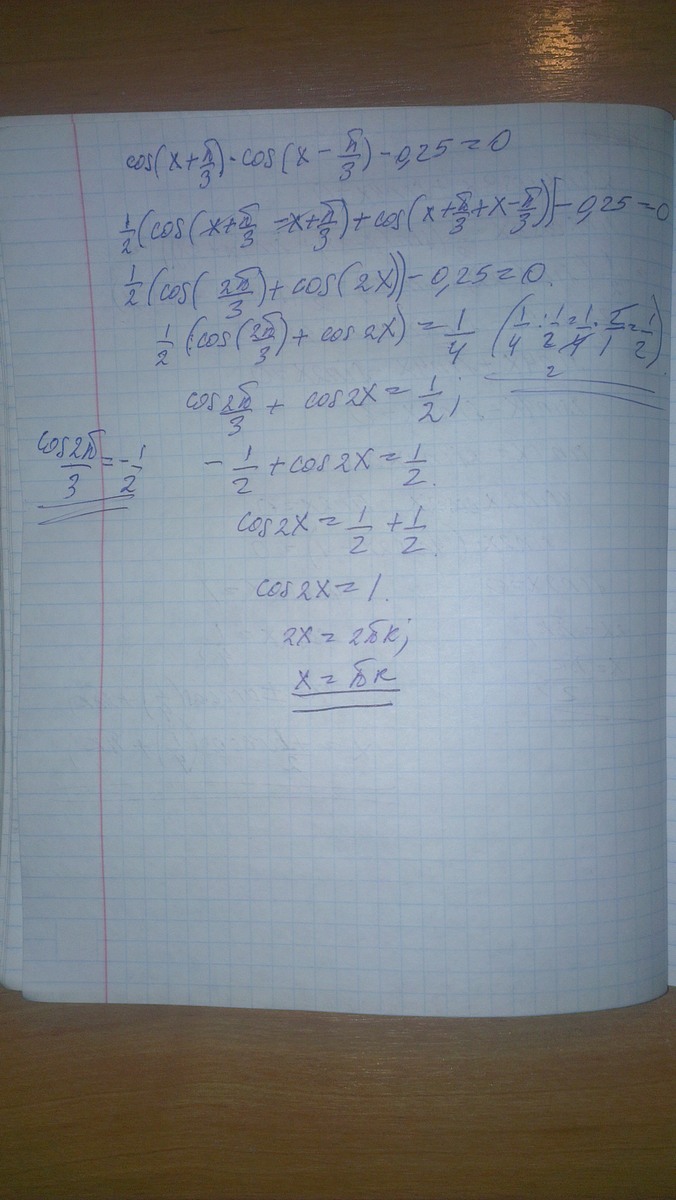 cos(x+π/3)·cos(x−π/3)−0,25=0
1/2(cos(x+π/3−x+π/3)+cos(x+π/3+x−π/3))−0,25=0
1/2(cos(2π/3)+cos(2x))−0,25=0.
1/2(cos(2π/3)+cos2x)=1/4 (1/4:1/2=1/4·2/1=1/2)
2
cos2π/3+cos2x=1/2;
cos2π/3=−1/2 −1/2+cos2x=1/2.
cos2x=1/2+1/2.
cos2x=1.
2x=2πк;
x=πк